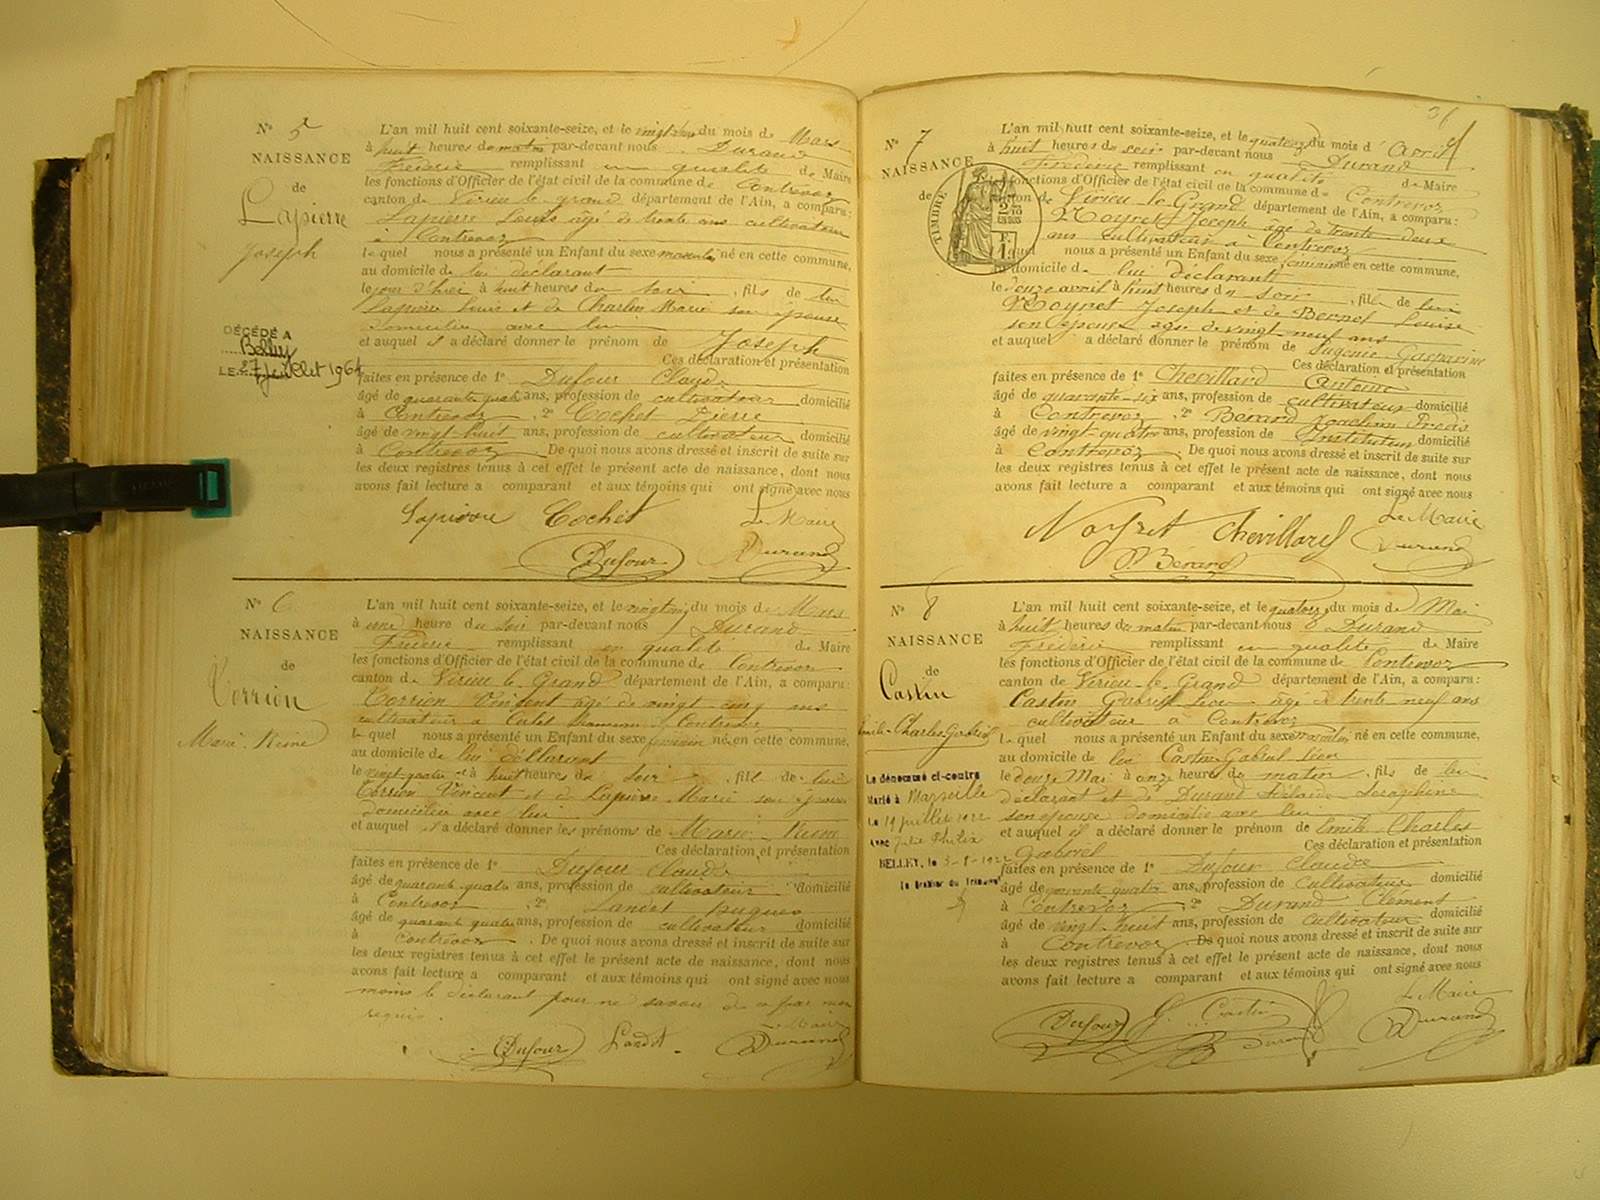 N° 5
NAISSANCE
de
Lapierre
Joseph
DÉCÉDÉ A
Belley
LE 27 juillet 1964
L'an mil huit cent soixante-seize, et le du mois de Mars
à huit heures du matin par-devant nous Durand
Frédéric remplissant en qualité de Maire
les fonctions d'Officier de l'état civil de la commune de Contrevoz
canton de Virieu le grand département de l'Ain, a comparu:
Lapierre Louis âgé de trente ans cultivateur
à Contrevoz
lequel nous a présenté un Enfant du sexe masculin né en cette commune,
au domicile de lui déclarant
le jour d'hier à huit heures du soir, fils de lui
Lapierre Louis et de Charlin Marie son épouse
domiciliée avec lui
et auquel il a déclaré donner le prénom de Joseph
Ces déclaration et présentation
faites en présence de 1° Dufour Claude
âgé de quarante quatre ans, profession de cultivateur domicilié
à Contrevoz, 2° Cochet Pierre
âgé de vingt-huit ans, profession de cultivateur domicilié
à Contrevoz. De quoi nous avons dressé et inscrit de suite sur
les deux registres tenus à cet effet le présent acte de naissance, dont nous
avons fait lecture a comparant et aux témoins qui ont signé avec nous
Lapierre Cochet Le Maire
Dufour Durand
N° 6
NAISSANCE
de
Torrion
Marie-Reine
L'an mil huit cent soixante-seize, et le du mois de Mars
à une heure du soir par-devant nous Durand
Frédéric remplissant en qualité de Maire
les fonctions d'Officier de l'état civil de la commune de Contrevoz
canton de Virieu le Grand département de l'Ain, a comparu:
Torrion Vincent âgé de vingt cinq ans
cultivateur à hameau de Contrevoz
lequel nous a présenté un Enfant du sexe féminin né en cette commune,
au domicile de lui déclarant
le vingt-quatre à huit heures du soir, fille de lui
Torrion Vincent et de Lapierre Marie son épouse
domiciliée avec lui
et auquel il a déclaré donner les prénoms de Marie-Reine
Ces déclaration et présentation
faites en présence de 1° Dufour Claude
âgé de quarante quatre ans, profession de cultivateur domicilié
à Contrevoz, 2° Landot Hugues
âgé de quarante quatre ans, profession de cultivateur domicilié
à Contrevoz. De quoi nous avons dressé et inscrit de suite sur
les deux registres tenus à cet effet le présent acte de naissance, dont nous
avons fait lecture a comparant et aux témoins qui ont signé avec nous
moins le déclarant pour ne savoir de ce par nous
requis.
Le Maire
Dufour Landot Durand
36
N° 7
NAISSANCE
de
TIMBRE
L'an mil huit cent soixante-seize, et le quatorze du mois d'Avril
à huit heures du soir par-devant nous Durand
Frédéric remplissant en qualité de Maire
les fonctions d'Officier de l'état civil de la commune de Contrevoz
canton de Virieu-le-Grand département de l'Ain, a comparu:
Noyret Joseph âgé de trente-deux
ans cultivateur à Contrevoz
lequel nous a présenté un Enfant du sexe féminin né en cette commune,
au domicile de lui déclarant
le douze avril à huit heures du soir, fille de lui
Noyret Joseph et de Bernet Louise
son épouse âgée de vingt-neuf ans
et auquel a déclaré donner le prénom de Eugénie Gasparine
Ces déclaration et présentation
faites en présence de 1° Chevillard Antoine
âgé de quarante-six ans, profession de cultivateur domicilié
à Contrevoz, 2° Bérard Joachim
âgé de vingt-quatre ans, profession de Instituteur domicilié
à Contrevoz. De quoi nous avons dressé et inscrit de suite sur
les deux registres tenus à cet effet le présent acte de naissance, dont nous
avons fait lecture a comparant et aux témoins qui ont signé avec nous
Noyret Chevillard Le Maire
Bérard Durand
N° 8
NAISSANCE
de
Castin
Emile-Charles-Gabriel
Le dénommé ci-contre
Marié à Marseille
Le 19 juillet 1922
Avec Julie Philix
BELLEY, le 3-8-1922
Le Greffier du Tribunal
L'an mil huit cent soixante-seize, et le quatorze du mois de Mai
à huit heures du matin par-devant nous Durand
Frédéric remplissant en qualité de Maire
les fonctions d'Officier de l'état civil de la commune de Contrevoz
canton de Virieu-le-Grand département de l'Ain, a comparu:
Castin Gabriel Léon âgé de trente neuf ans
cultivateur à Contrevoz
lequel nous a présenté un Enfant du sexe masculin né en cette commune,
au domicile de lui Castin Gabriel Léon
le douze Mai à onze heures du matin, fils de lui
déclarant et de Durand Adélaïde Séraphine
son épouse domiciliée avec lui
et auquel il a déclaré donner le prénom de Emile Charles
Gabriel Ces déclaration et présentation
faites en présence de 1° Dufour Claude
âgé de quarante quatre ans, profession de cultivateur domicilié
à Contrevoz, 2° Durand Clément
âgé de vingt-huit ans, profession de cultivateur domicilié
à Contrevoz De quoi nous avons dressé et inscrit de suite sur
les deux registres tenus à cet effet le présent acte de naissance, dont nous
avons fait lecture a comparant et aux témoins qui ont signé avec nous
Le Maire
Dufour G. Castin Durand